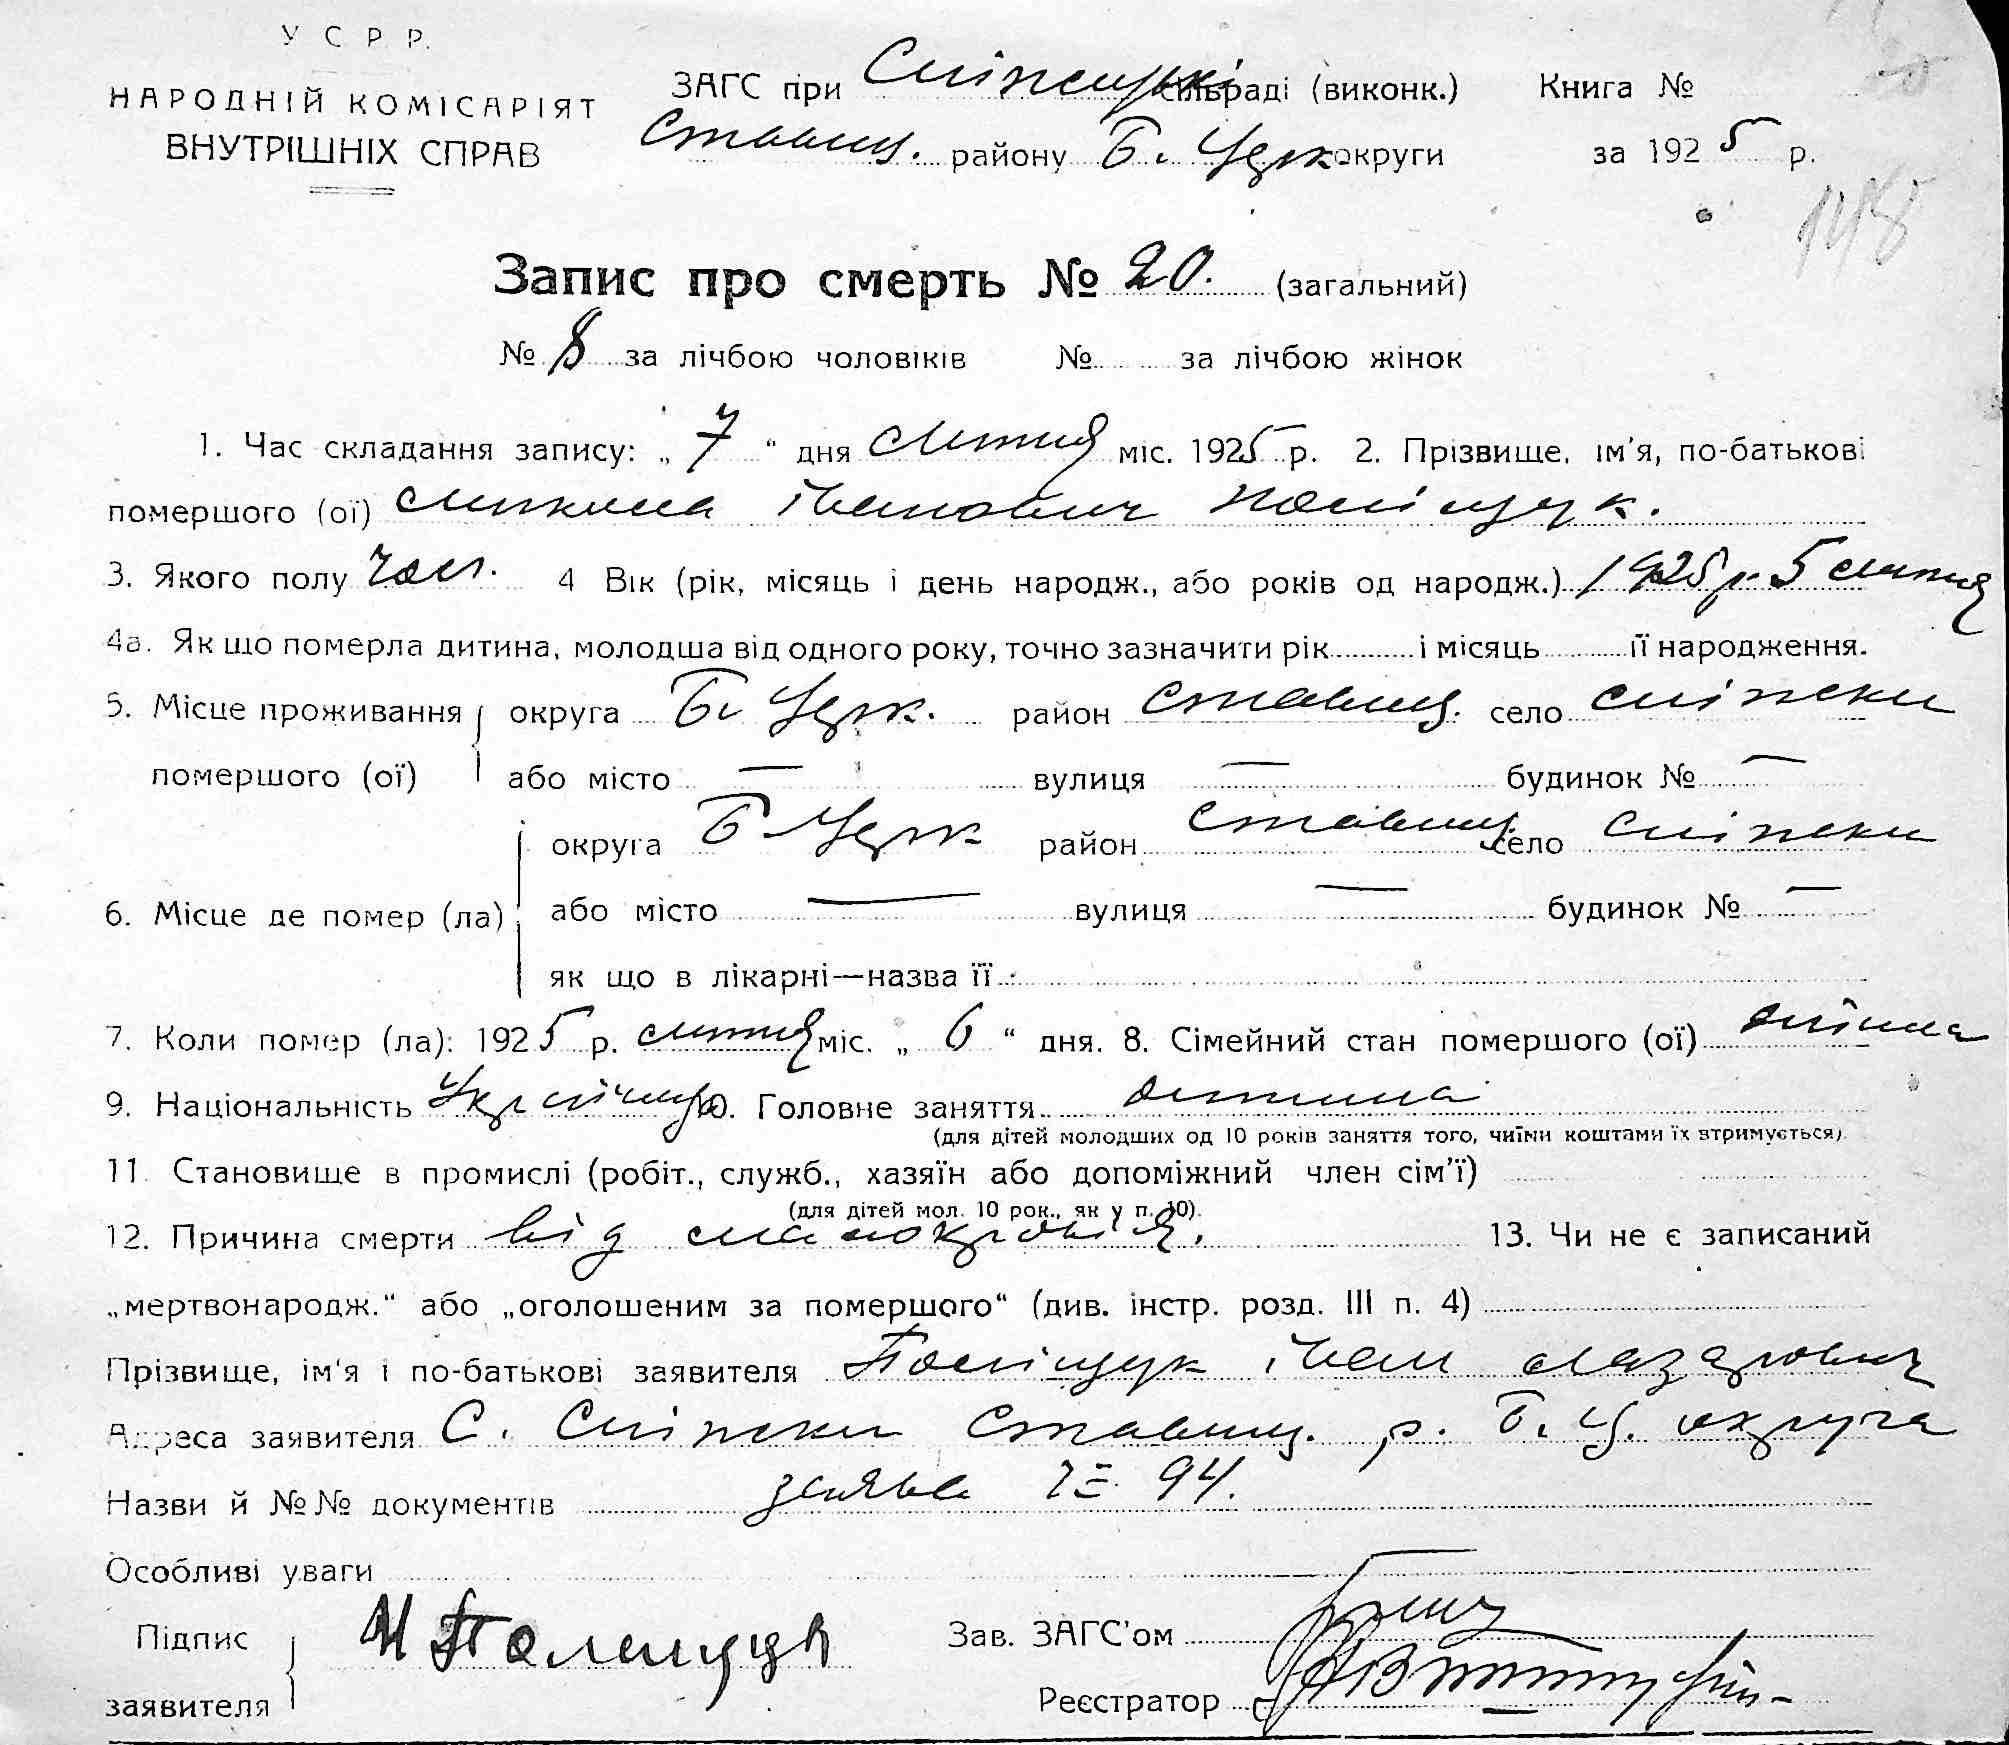 У С Р Р.
НАРОДНІЙ КОМІСАРІЯТ
ВНУТРІШНІХ СПРАВ
ЗАГС при Сніжецькі сільраді (виконк.)
Ставищ. району Б. Церк округи
Книга №
за 1925 р.
148
Запис про смерть № 20. (загальний)
№ 8 за лічбою чоловіків № за лічбою жінок
1. Час складання запису: „ 7 “ дня лютня міс. 1925 р. 2. Прізвище, ім'я, по-батькові
помершого (ої) Микола Іванович Поліщук.
3. Якого полу чол. 4 Вік (рік, місяць і день народж., або років од народж.) 1925 р. 5 лютня
4а. Як що померла дитина, молодша від одного року, точно зазначити рік і місяць її народження.
5. Місце проживання округа Б. Церк. район Ставищ. село
помершого (ої) або місто — вулиця — будинок № —
округа Б. Церк район Ставищ. село
6. Місце де помер (ла) або місто — вулиця — будинок № —
як що в лікарні—назва її
7. Коли помер (ла): 1925 р. лютня міс. „ 6 “ дня. 8. Сімейний стан помершого (ої)
9. Національність Українец 10. Головне заняття дитина
(для дітей молодших од 10 років заняття того, чиїми коштами їх втримується)
11. Становище в промислі (робіт., служб., хазяїн або допоміжний член сім'ї)
(для дітей мол. 10 рок., як у п. 10).
12. Причина смерти від малокровія. 13. Чи не є записаний
„мертвонародж.“ або „оголошеним за помершого“ (див. інстр. розд. III п. 4)
Прізвище, ім'я і по-батькові заявителя Поліщук Іван Лазарович
Адреса заявителя С. Ставищ. р. Б. Ц. округа
Назви й №№ документів заява 94.
Особливі уваги
Підпис
заявителя
И Полищук
Зав. ЗАГС'ом
Реєстратор